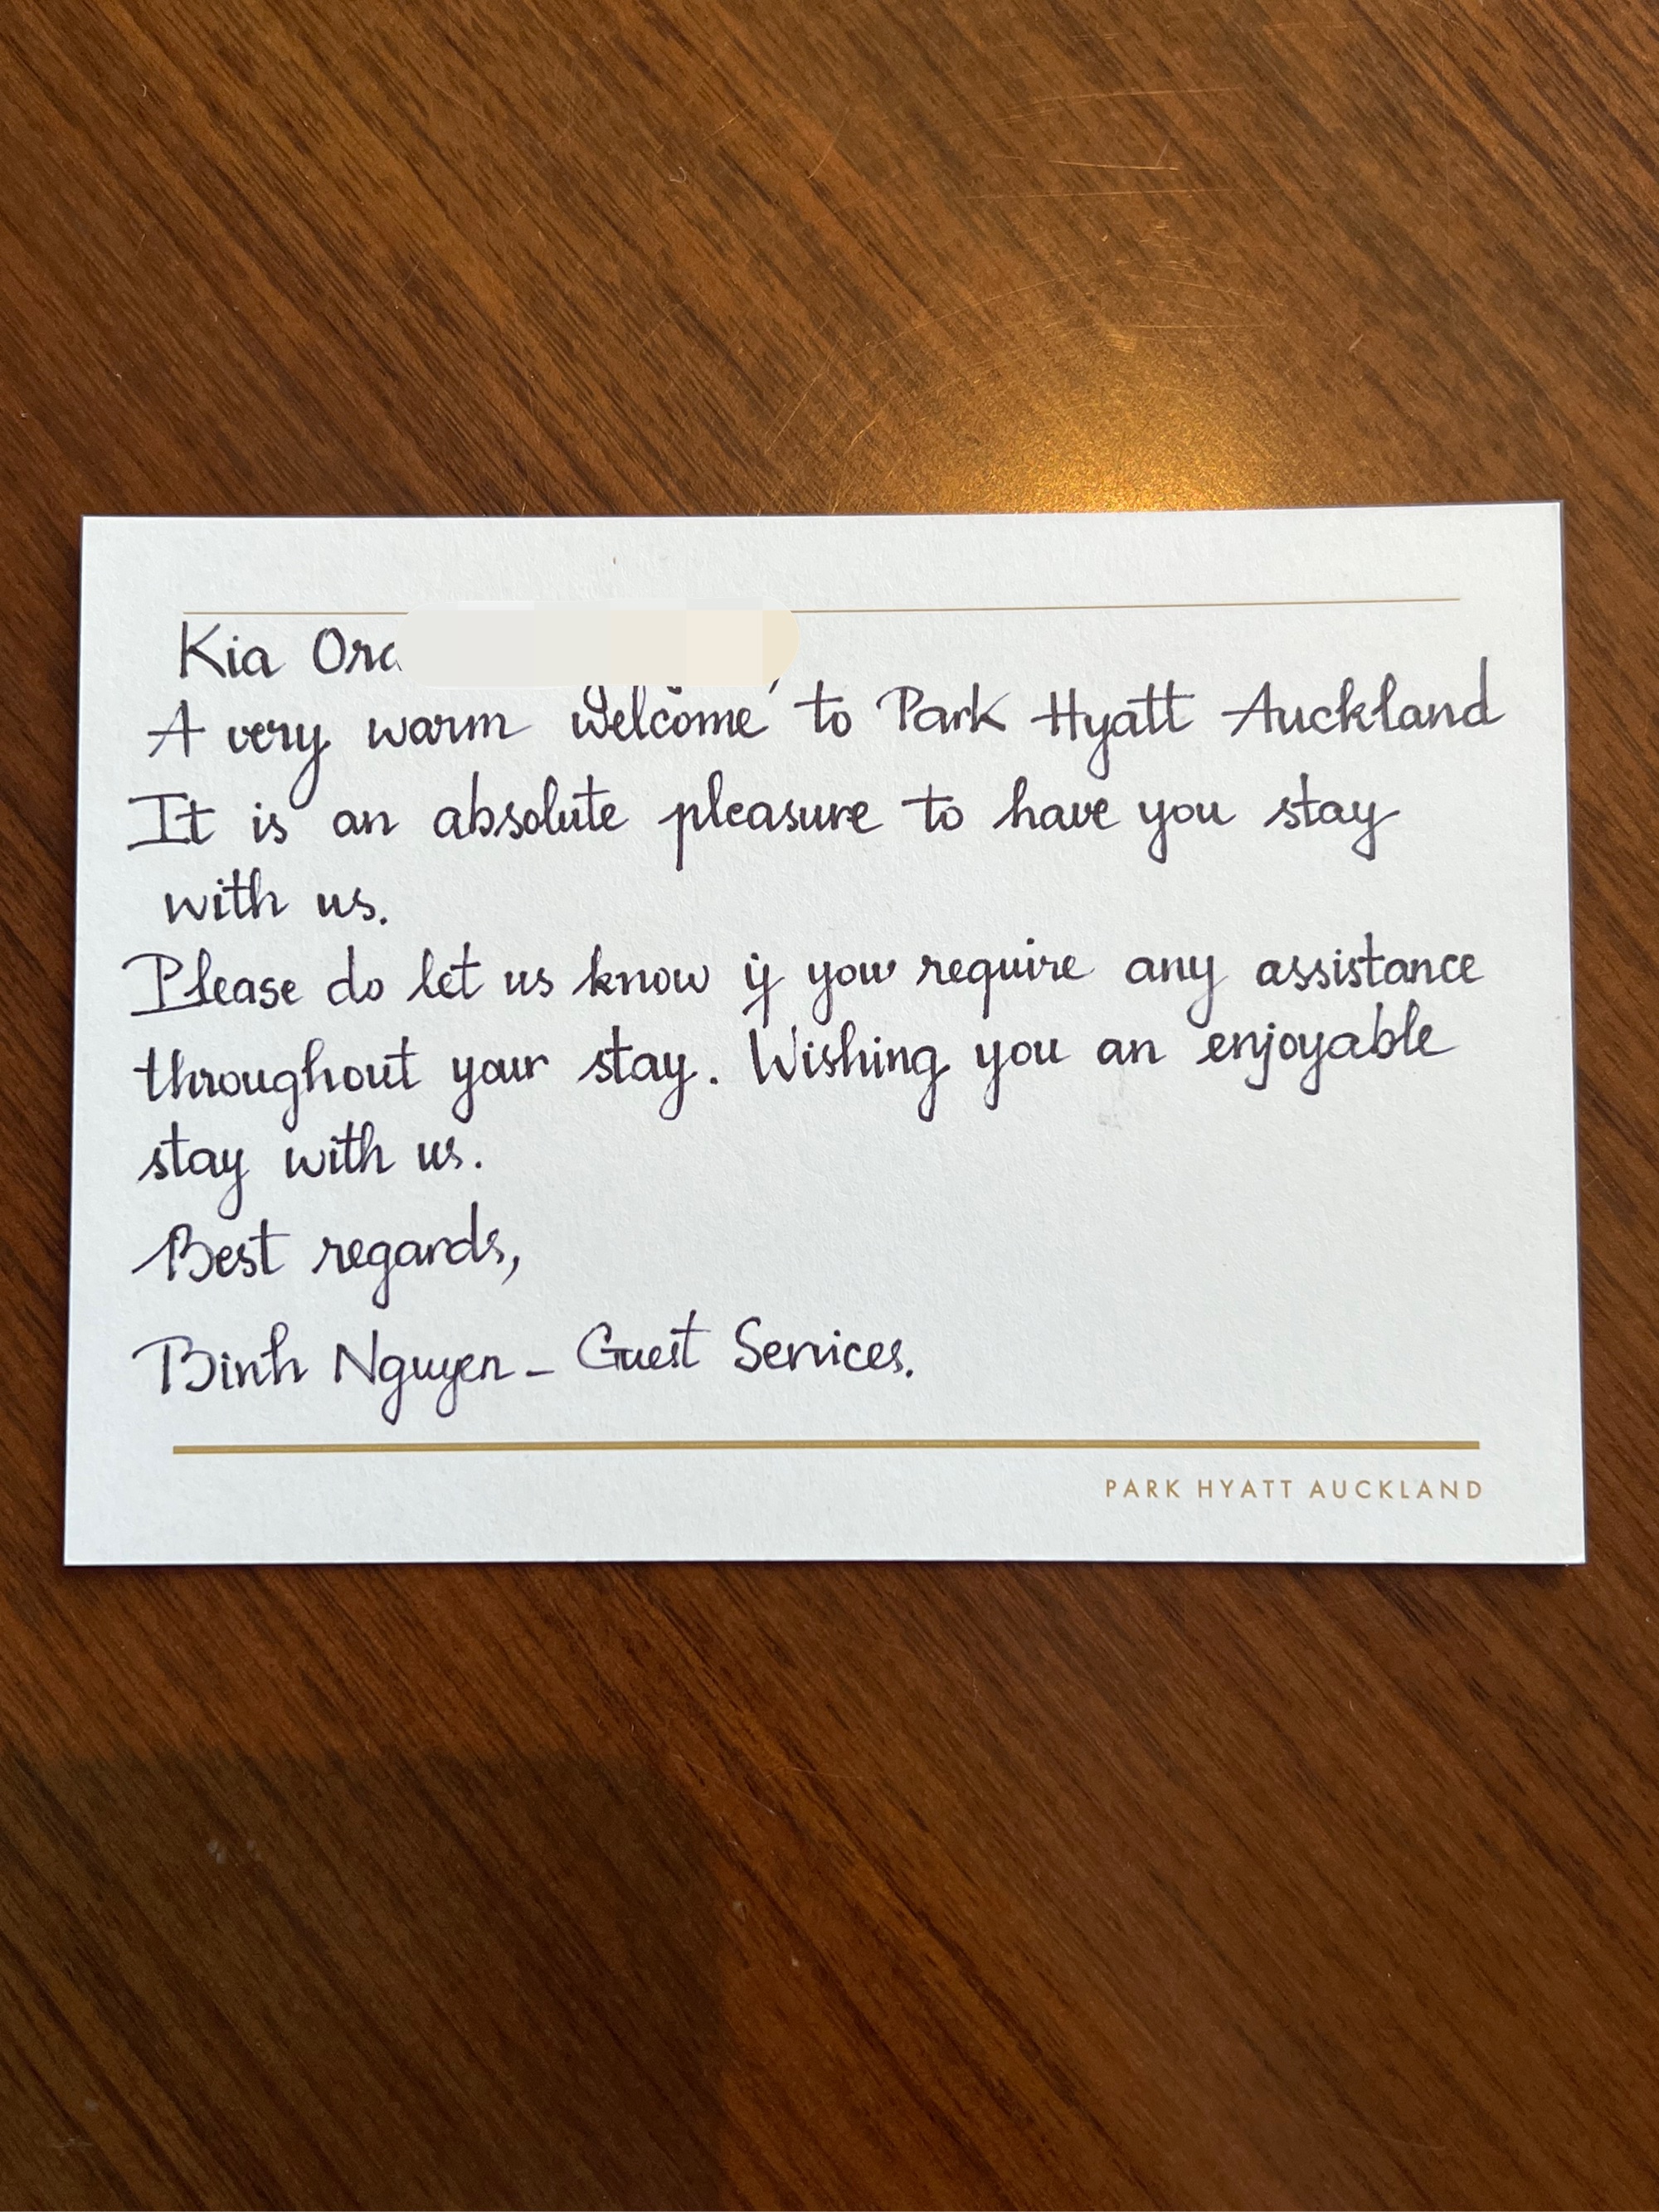 Kia Ora
A very warm welcome to Park Hyatt Auckland
It is an absolute pleasure to have you stay
with us.
Please do let us know if you require any assistance
throughout your stay. Wishing you an enjoyable
stay with us.
Best regards,
Binh Nguyen - Guest Services.
PARK HYATT AUCKLAND